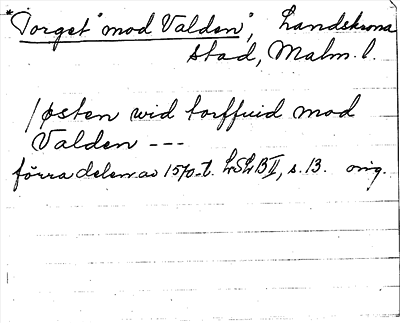 *"Torget" mod Valden", Landskrona
stad, Malm. l.
/østen wid torffuid mod
Valden ---
förra delen av 1570-t. LSLB II, s. 13. orig.